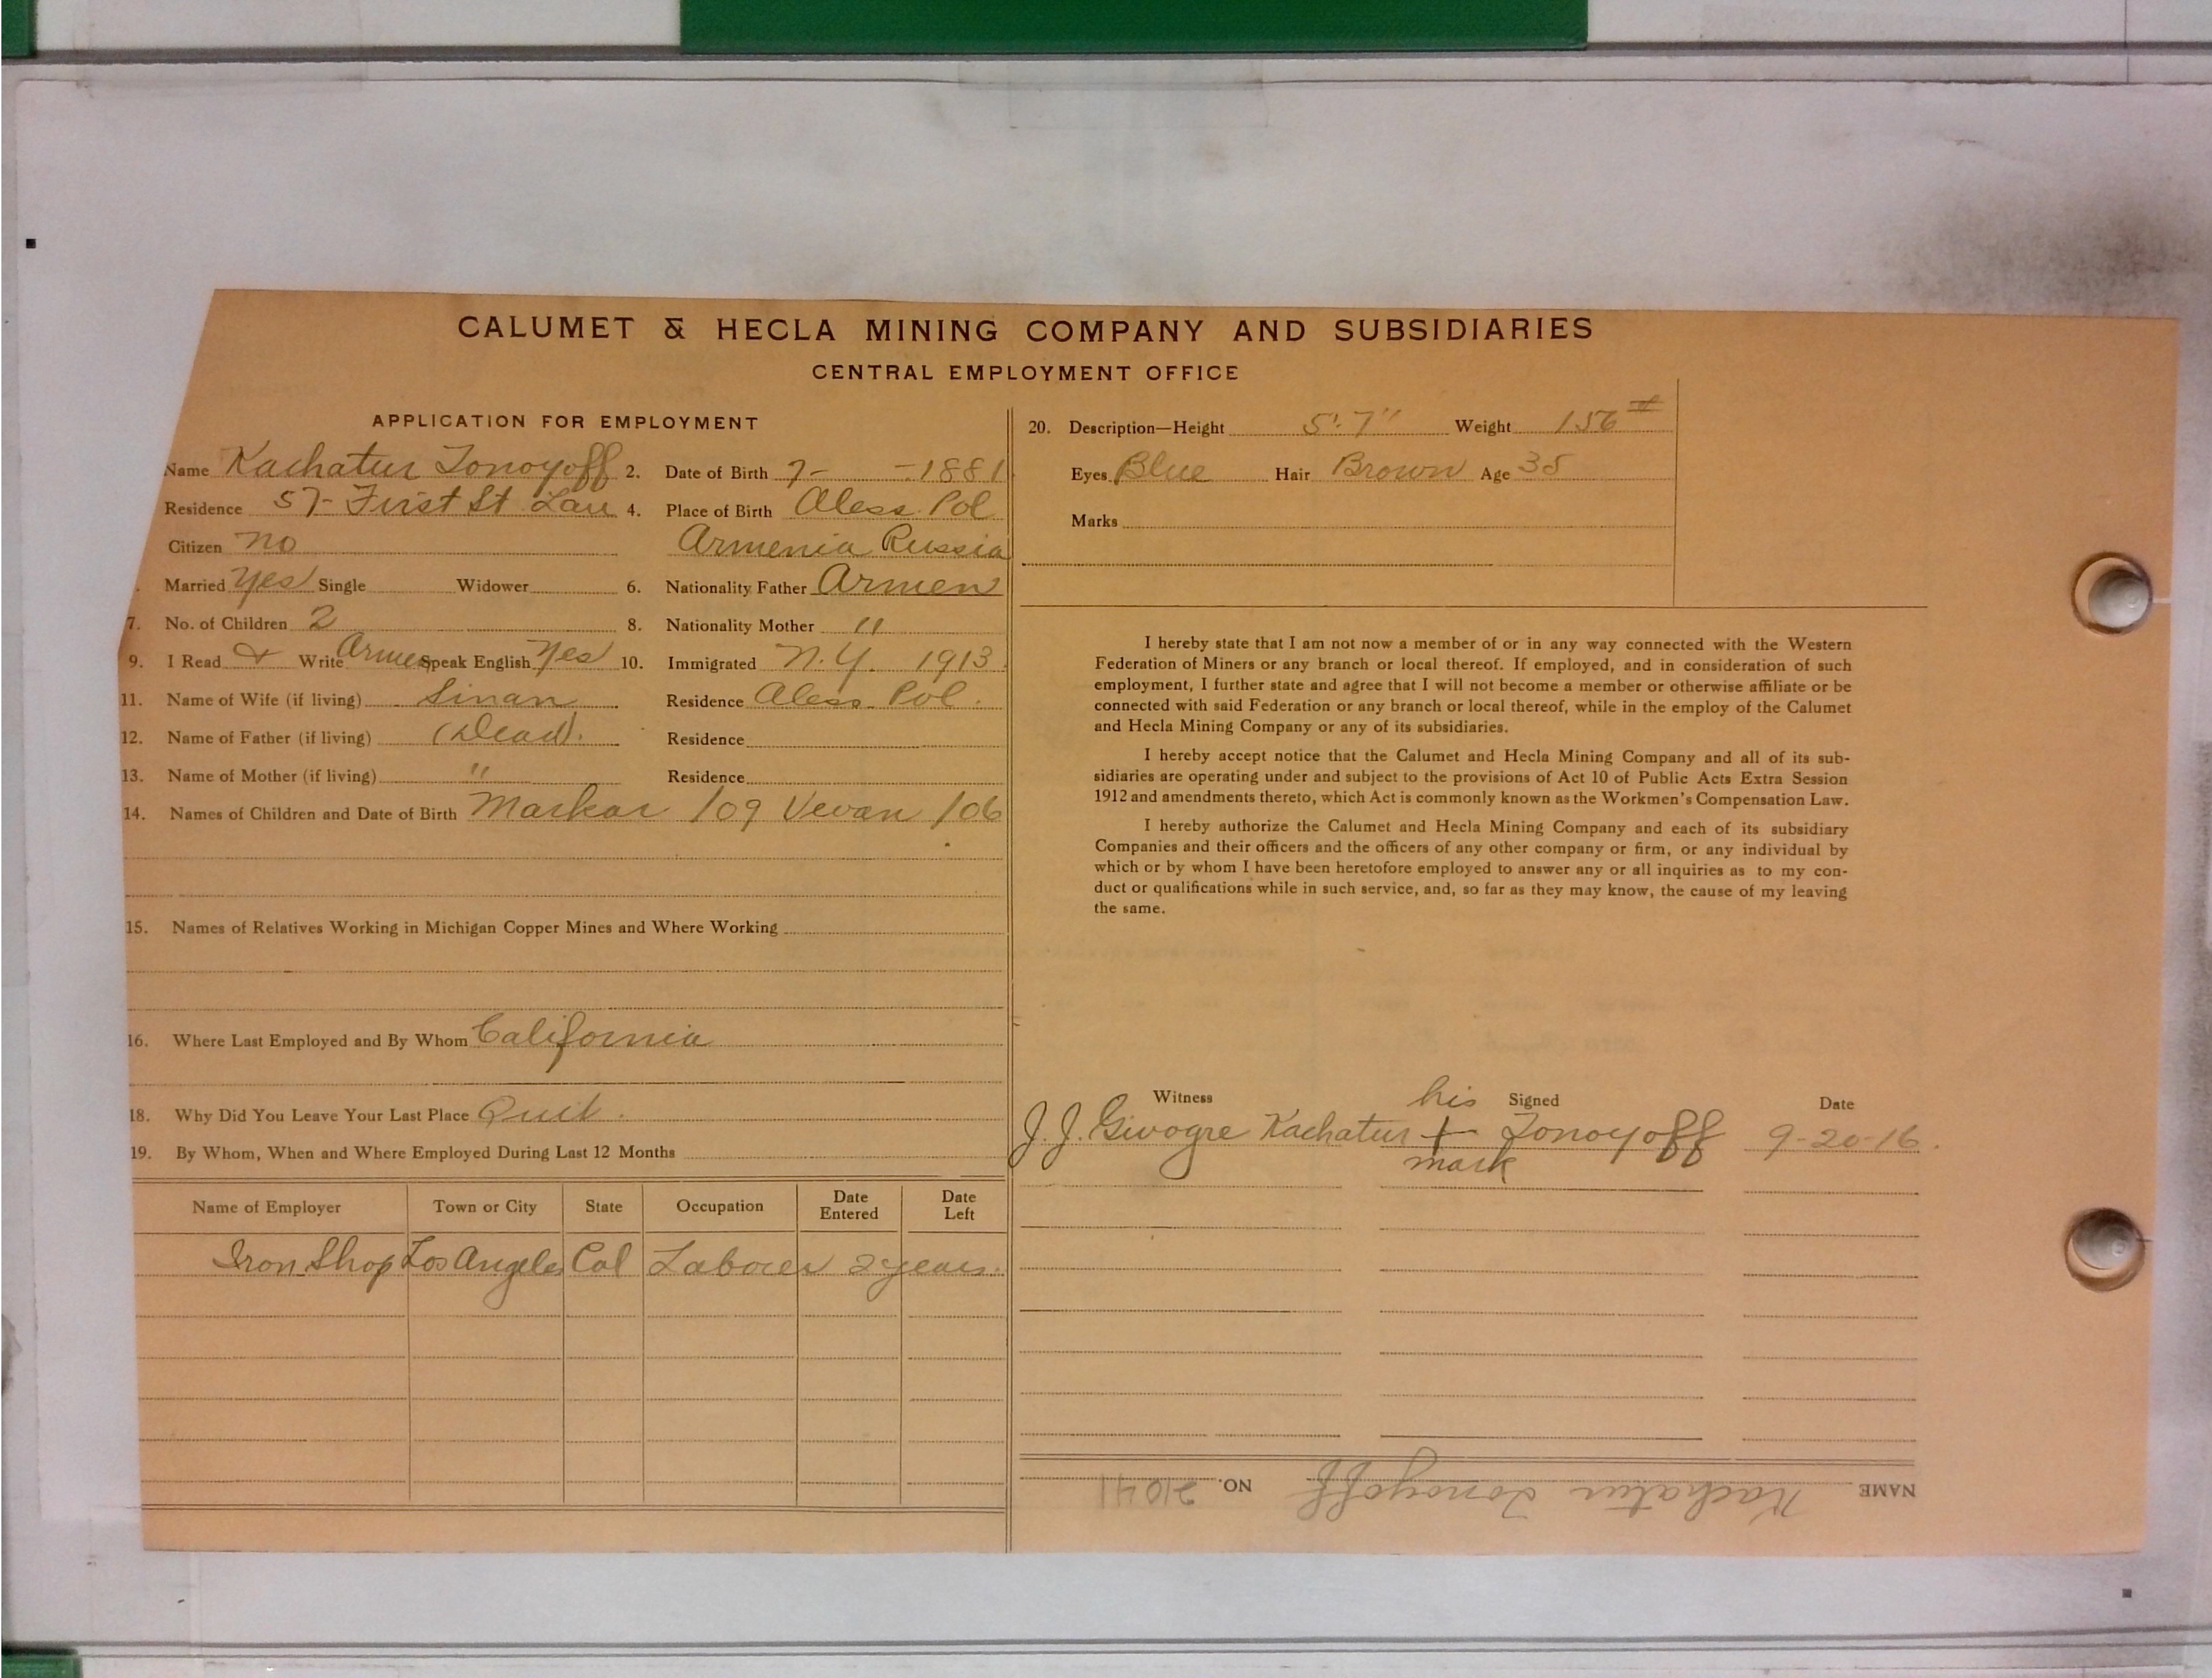 CALUMET & HECLA MINING COMPANY AND SUBSIDIARIES
CENTRAL EMPLOYMENT OFFICE
APPLICATION FOR EMPLOYMENT
Name Kachatur Tonoyoff 2. Date of Birth 7- -1881
Residence 57- First St Lau 4. Place of Birth Aless. Pol
Citizen no Armenia Russia
Married Yes Single Widower 6. Nationality Father Armen
7. No. of Children 2 8. Nationality Mother "
9. I Read & Write Armen Speak English Yes 10. Immigrated N.Y. 1913
11. Name of Wife (if living) Sinan Residence Aless. Pol.
12. Name of Father (if living) (Dead). Residence
13. Name of Mother (if living) " Residence
14. Names of Children and Date of Birth Markar /09 Vevan /06
15. Names of Relatives Working in Michigan Copper Mines and Where Working
16. Where Last Employed and By Whom California
18. Why Did You Leave Your Last Place Quit.
19. By Whom, When and Where Employed During Last 12 Months
Name of Employer Town or City State Occupation Date Entered Date Left
Iron Shop Los Angeles Cal Laborer 2 years.
20. Description—Height 5' 7" Weight 156 #
Eyes Blue Hair Brown Age 35
Marks
I hereby state that I am not now a member of or in any way connected with the Western
Federation of Miners or any branch or local thereof. If employed, and in consideration of such
employment, I further state and agree that I will not become a member or otherwise affiliate or be
connected with said Federation or any branch or local thereof, while in the employ of the Calumet
and Hecla Mining Company or any of its subsidiaries.
I hereby accept notice that the Calumet and Hecla Mining Company and all of its sub-
sidiaries are operating under and subject to the provisions of Act 10 of Public Acts Extra Session
1912 and amendments thereto, which Act is commonly known as the Workmen's Compensation Law.
I hereby authorize the Calumet and Hecla Mining Company and each of its subsidiary
Companies and their officers and the officers of any other company or firm, or any individual by
which or by whom I have been heretofore employed to answer any or all inquiries as to my con-
duct or qualifications while in such service, and, so far as they may know, the cause of my leaving
the same.
Witness his Signed Date
J. J. Givogre Kachatur + Tonoyoff 9-20-16.
mark
NAME Kachatur Tonoyoff NO. 21041